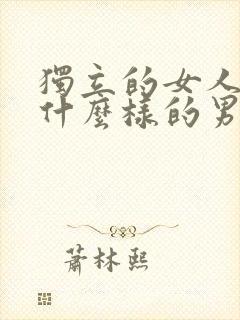 獨立的女人
什麼樣的男
蕭林熙